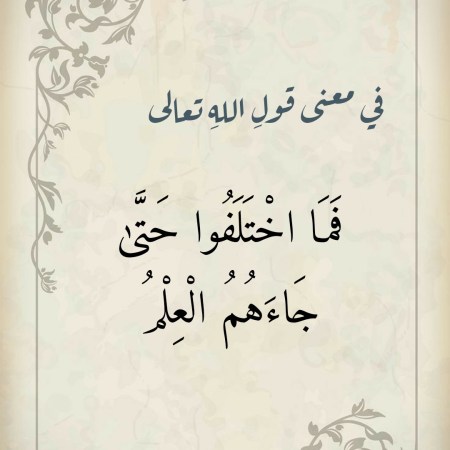 في معنى قولِ اللهِ تعالى
فَمَا اخْتَلَفُوا حَتَّىٰ
جَاءَهُمُ الْعِلْمُ